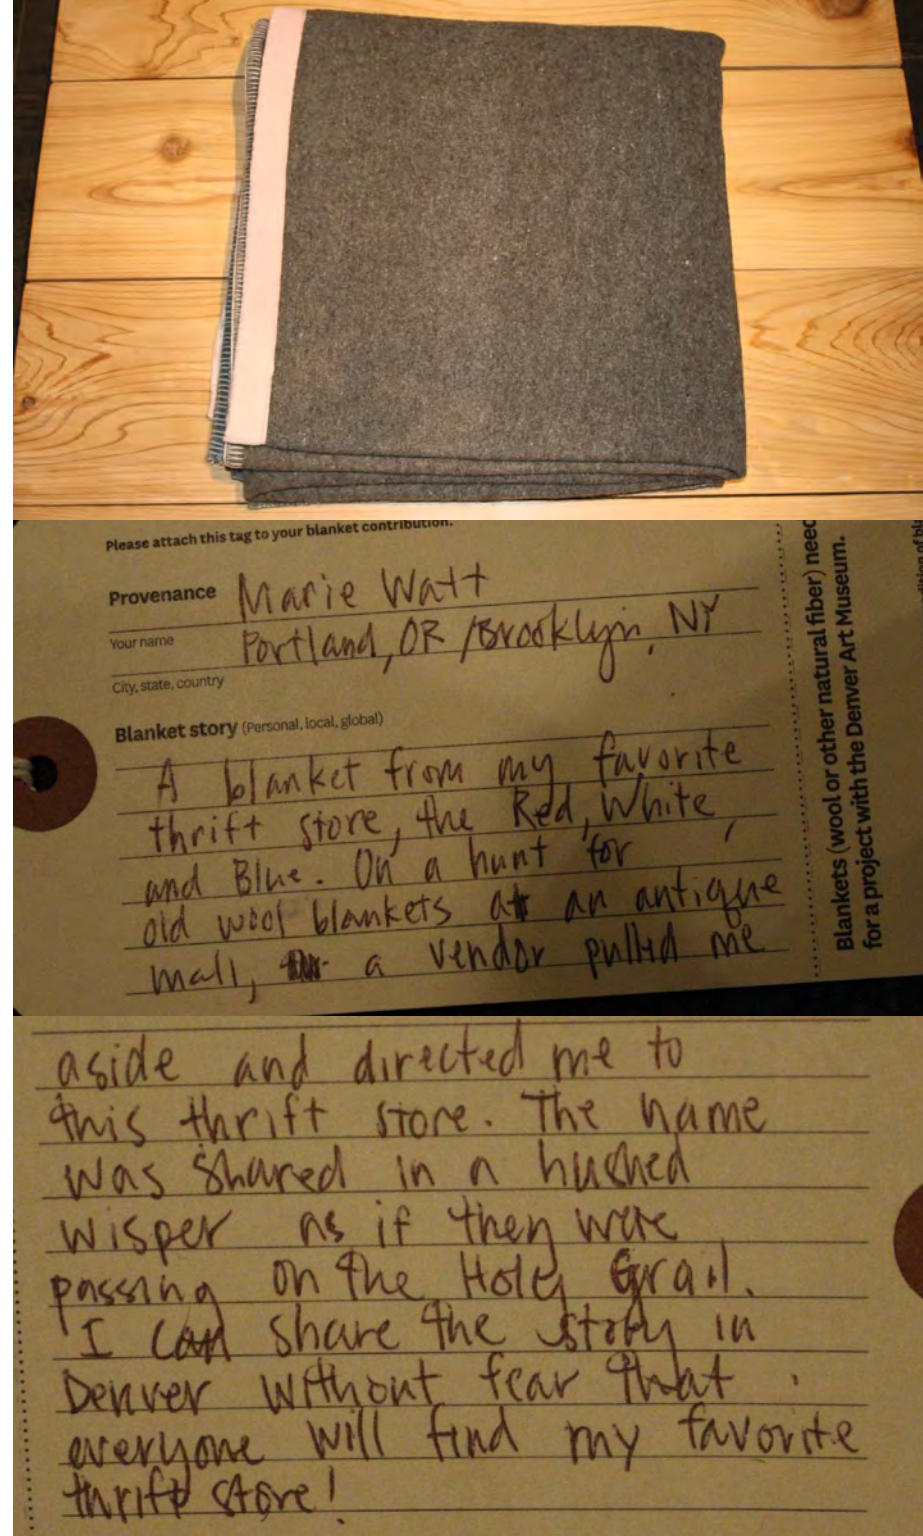 Please attach this tag to your blanket contribution.
Provenance Marie Watt
Your name
Portland, OR / Brooklyn, NY
City, state, country
Blanket story (Personal, local, global)
A blanket from my favorite
thrift store, the Red, White,
and Blue. On a hunt for
old wool blankets at an antique
mall, a vendor pulled me
Blankets (wool or other natural fiber) need
for a project with the Denver Art Museum.
aside and directed me to
this thrift store. The name
was shared in a hushed
wisper as if they were
passing on the Holy Grail.
I can share the story in
Denver without fear that
everyone will find my favorite
thrift store!